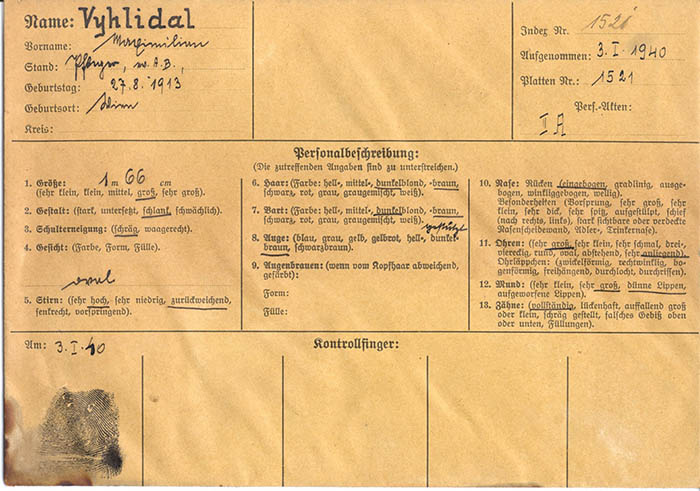 Name: Vyhlidal
Vorname: Maximilian
Stand: Pfleger,
Geburtstag: 27.8.1913
Geburtsort: Wien
Kreis:
Index Nr. 1521
Aufgenommen: 3.I.1940
Platten Nr.: 1521
Pers.-Akten:
IA
Personalbeschreibung:
(Die zutreffenden Angaben sind zu unterstreichen.)
1. Größe: 1 m 66 cm
(sehr klein, klein, mittel, groß, sehr groß).
2. Gestalt: (stark, untersetzt, schlank, schwächlich).
3. Schulterneigung: (schräg, waagerecht).
4. Gesicht: (Farbe, Form, Fülle).
oval
5. Stirn: (sehr hoch, sehr niedrig, zurückweichend,
senkrecht, vorspringend).
6. Haar: (Farbe: hell-, mittel-, dunkelblond, -braun,
schwarz, rot, grau, graugemischt, weiß).
7. Bart: (Farbe: hell-, mittel-, dunkelblond, -braun,
schwarz, rot, grau, graugemischt, weiß).
gestutzt
8. Auge: (blau, grau, gelb, gelbrot, hell-, dunkel-
braun, schwarzbraun).
9. Augenbrauen: (wenn vom Kopfhaar abweichend,
gefärbt):
Form:
Fülle:
10. Nase: Rücken (eingebogen, gradlinig, ausge-
bogen, winkliggebogen, wellig).
Besonderheiten (Vorsprung, sehr groß, sehr
klein, sehr dick, sehr spitz, aufgestülpt, schief
(nach rechts, links), stark sichtbare oder verdeckte
Nasenscheidewand, Adler-, Trinkernase).
11. Ohren: (sehr groß, sehr klein, sehr schmal, drei-,
viereckig, rund, oval, abstehend, sehr anliegend).
Ohrläppchen: (zwickelförmig, rechtwinklig, bo-
genförmig, freihängend, durchlocht, durchrissen).
12. Mund: (sehr klein, sehr groß, dünne Lippen,
aufgeworfene Lippen).
13. Zähne: (vollständig, lückenhaft, auffallend groß
oder klein, schräg gestellt, falsches Gebiß oben
oder unten, Füllungen).
Am: 3.I.40
Kontrollfinger: